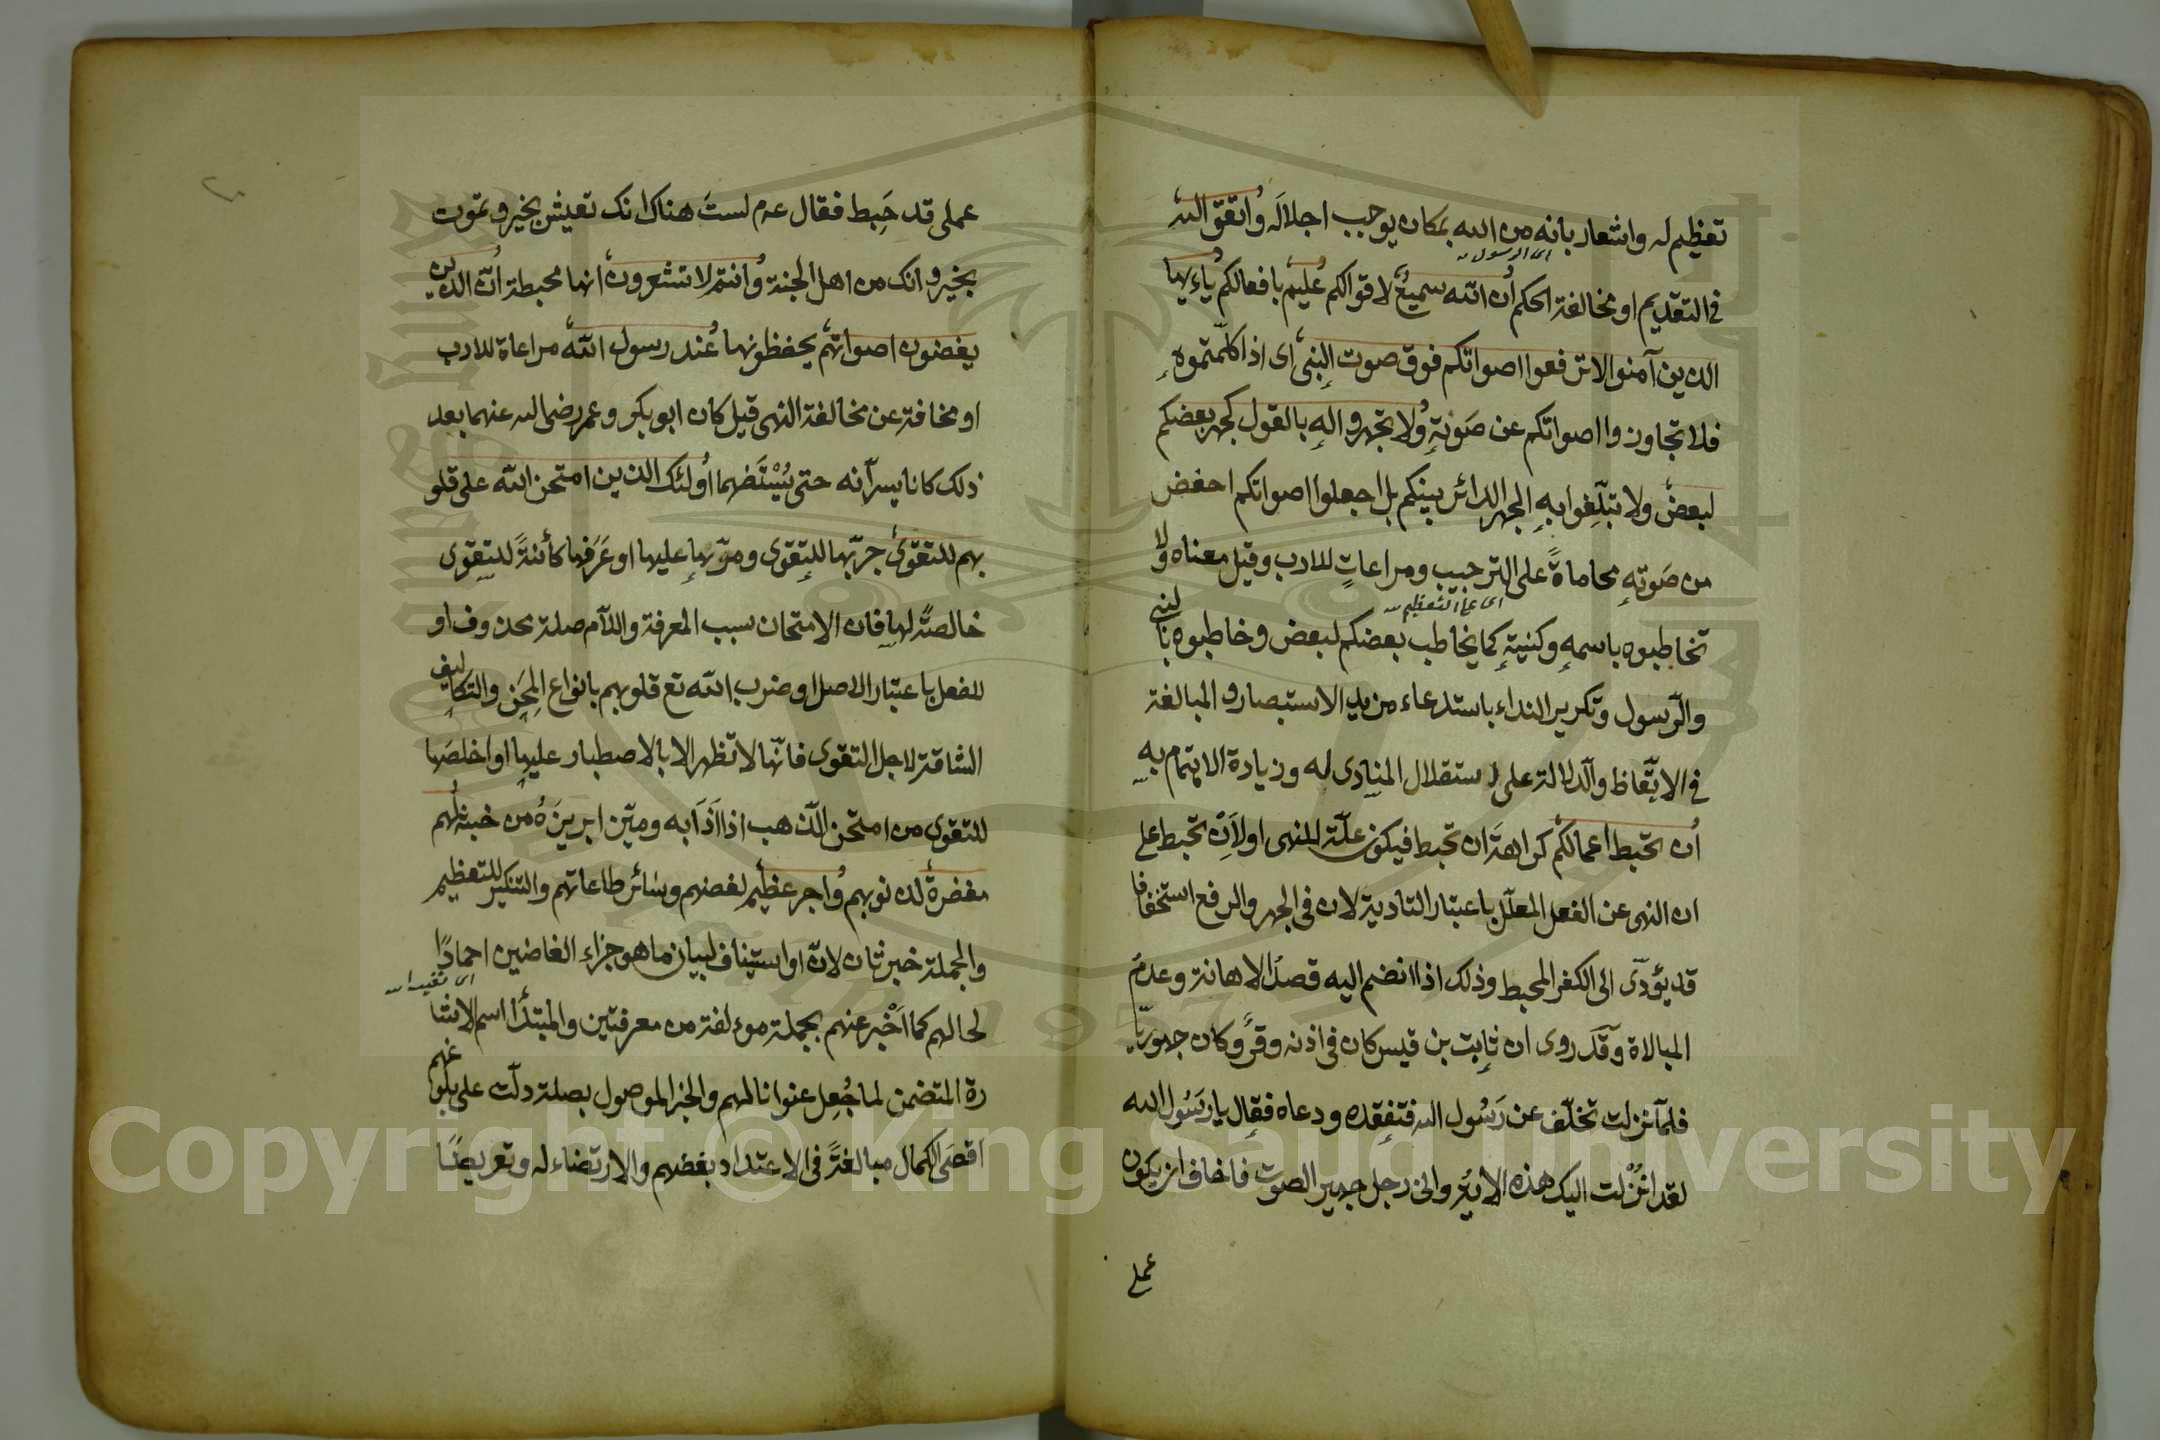 تعظيم له واشعار بانه من الله بمكان يوجب اجلاله واتقوا الله
اى الرسول
فى التقديم او مخالفة الحكم ان الله سميع لاقوالكم عليم بافعالكم ياءيها
الذين آمنوا لاترفعوا اصواتكم فوق صوت النبى اى اذا كلمتموه
فلا تجاوزوا اصواتكم عن صوته ولا تجهروا له بالقول كجهر بعضكم
لبعض ولا تبلغوا به الجهر الدائر بينكم بل اجعلوا اصواتكم اخفض
من صوته محاماة على الترحيب ومراعات للادب وقيل معناه ولا
اى على التعظيم
تخاطبوه باسمه وكنيته كما يخاطب بعضكم لبعض وخاطبوه بالنبى
والرسول وتكرير النداء باستدعاء مزيد الاستبصار والمبالغة
فى الاتعاظ والدلالة على استقلال المنادى له وزيادة الاهتمام به
ان تحبط اعمالكم كراهة ان تحبط فيكون علة للنهى او لأن تحبط على
ان النهى عن الفعل المعلل باعتبار التادية لان فى الجهر والرفع استخفافا
قد يؤدى الى الكفر المحبط وذلك اذا انضم اليه قصد الاهانة وعدم
المبالاة وقد روى ان ثابت بن قيس كان فى اذنه وقر وكان جهوريا
فلما نزلت تخلف عن رسول الله فتفقده ودعاه فقال يا رسول الله
لقد انزلت اليك هذه الاية وانى رجل جهير الصوت فاخاف ان يكون
عملى
عملى قد حبط فقال عم لست هناك انك تعيش بخير وتموت
بخير وانك من اهل الجنة وانتم لا تشعرون انها محبطة ان الذين
يغضون اصواتهم يخفظونها عند رسول الله مراعاة للادب
او مخافة عن مخالفة النهى قيل كان ابو بكر وعمر رضى الله عنهما بعد
ذلك كانا يسرانه حتى يستفهما اولئك الذين امتحن الله على قلو
بهم للتقوى جربها للتقوى ومرنها عليها او عرفها كائنة للتقوى
خالصة لها فان الامتحان سبب المعرفة واللام صلة محذوف او
للفعل باعتبار الاصل او ضرب الله تع قلوبهم بانواع المحن والتكاليف
الشاقة لاجل التقوى فانها لا تظهر الا بالاصطبار عليها او اخلصها
للتقوى من امتحن الذهب اذا اذابه وميز ابريزه من خبثه لهم
مغفرة لذنوبهم واجر عظيم لغضهم وسائر طاعاتهم والتنكير للتعظيم
والجملة خبر ثان لان او استيناف لبيان ما هو جزاء الغاضين احمادا
لحالهم كما اخبر عنهم بجملة مؤلفة من معرفتين والمبتدأ اسم الاشا
رة المتضمن لما جعل عنوانا لهم والخبر الموصول بصلة دلت على بلوغهم
اقصى الكمال مبالغة فى الاعتداد بغضهم والارتضاء له وتعريضا
Copyright © King Saud University